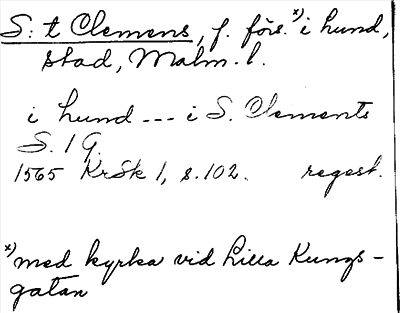 S:t Clemens, f. förs. x) i Lund,
stad, Malm. l.
i Lund --- i S. Clements
S. 1 G.
1565 KrSk 1, s. 102. regest.
x) med kyrka vid Lilla Kungs-
gatan